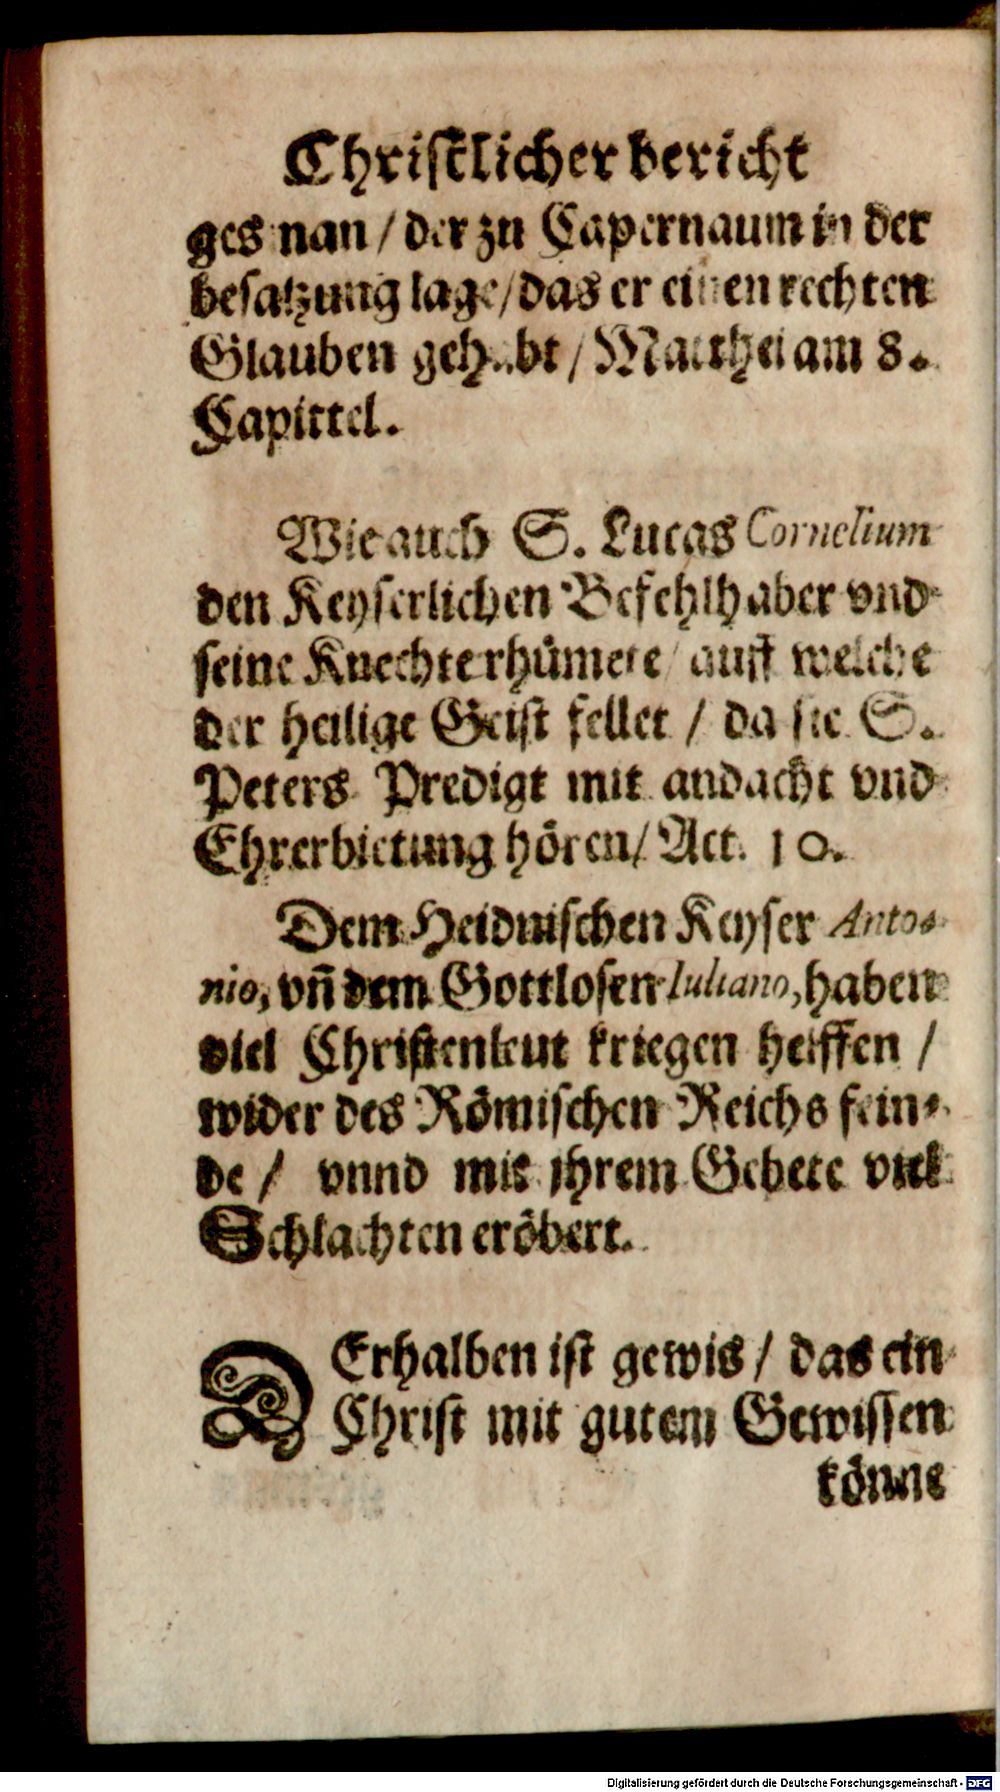 Christlicher bericht
gesman / der zu Capernaum in der
besatzung lage / das er einen rechten
Glauben gehabt / Matthei am 8.
Capittel.
Wie auch S. Lucas Cornelium
den Keyserlichen Befehlhaber vnd
seine Knechte rhümete / auff welche
der heilige Geist fellet / da sie S.
Peters Predigt mit andacht vnd
Ehrerbietung hören / Act. 10.
Dem Heidnischen Keyser Anto-
nio, vñ dem Gottlosen Iuliano, haben
viel Christenleut kriegen helffen /
wider des Römischen Reichs fein-
de / vnnd mit ihrem Gebete viel
Schlachten eröbert.
DErhalben ist gewis / das ein
Christ mit gutem Gewissen
könne
Digitalisierung gefördert durch die Deutsche Forschungsgemeinschaft - DFG